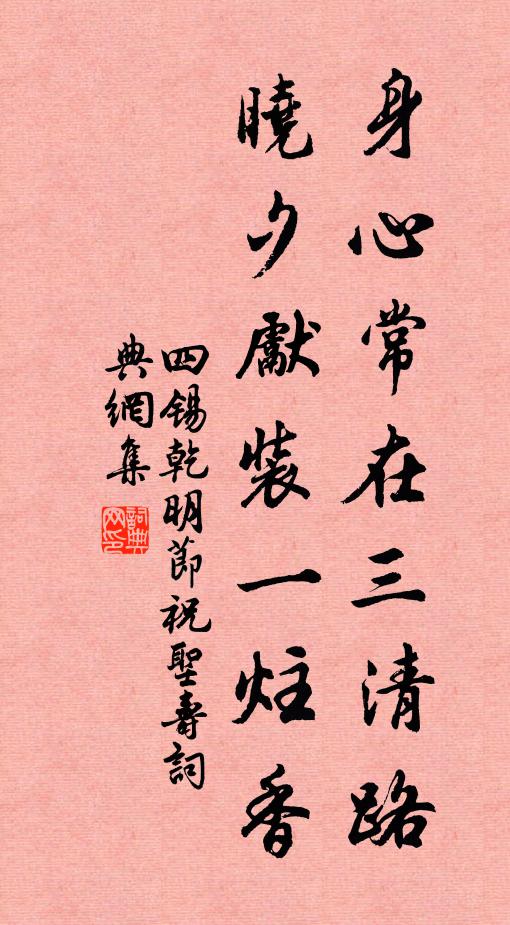 身心常在三清路
曉夕獻裝一炷香
四錫乾明節祝聖壽詞
典網集
詞典网印